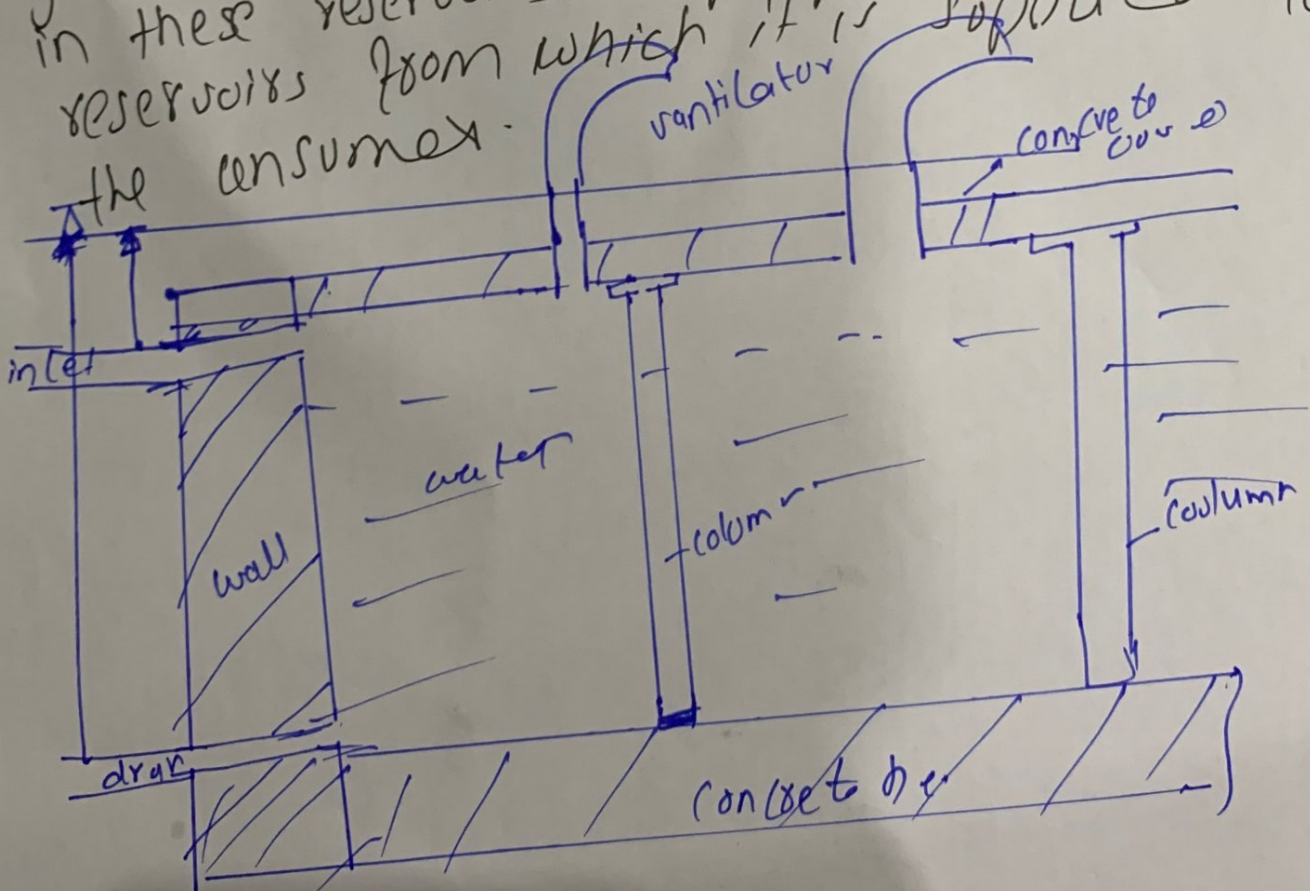 in these
reservoirs from which it is
the consumer.
vantilator
concrete
cove
inlet
water
wall
colum
coulumn
dran
concrete be